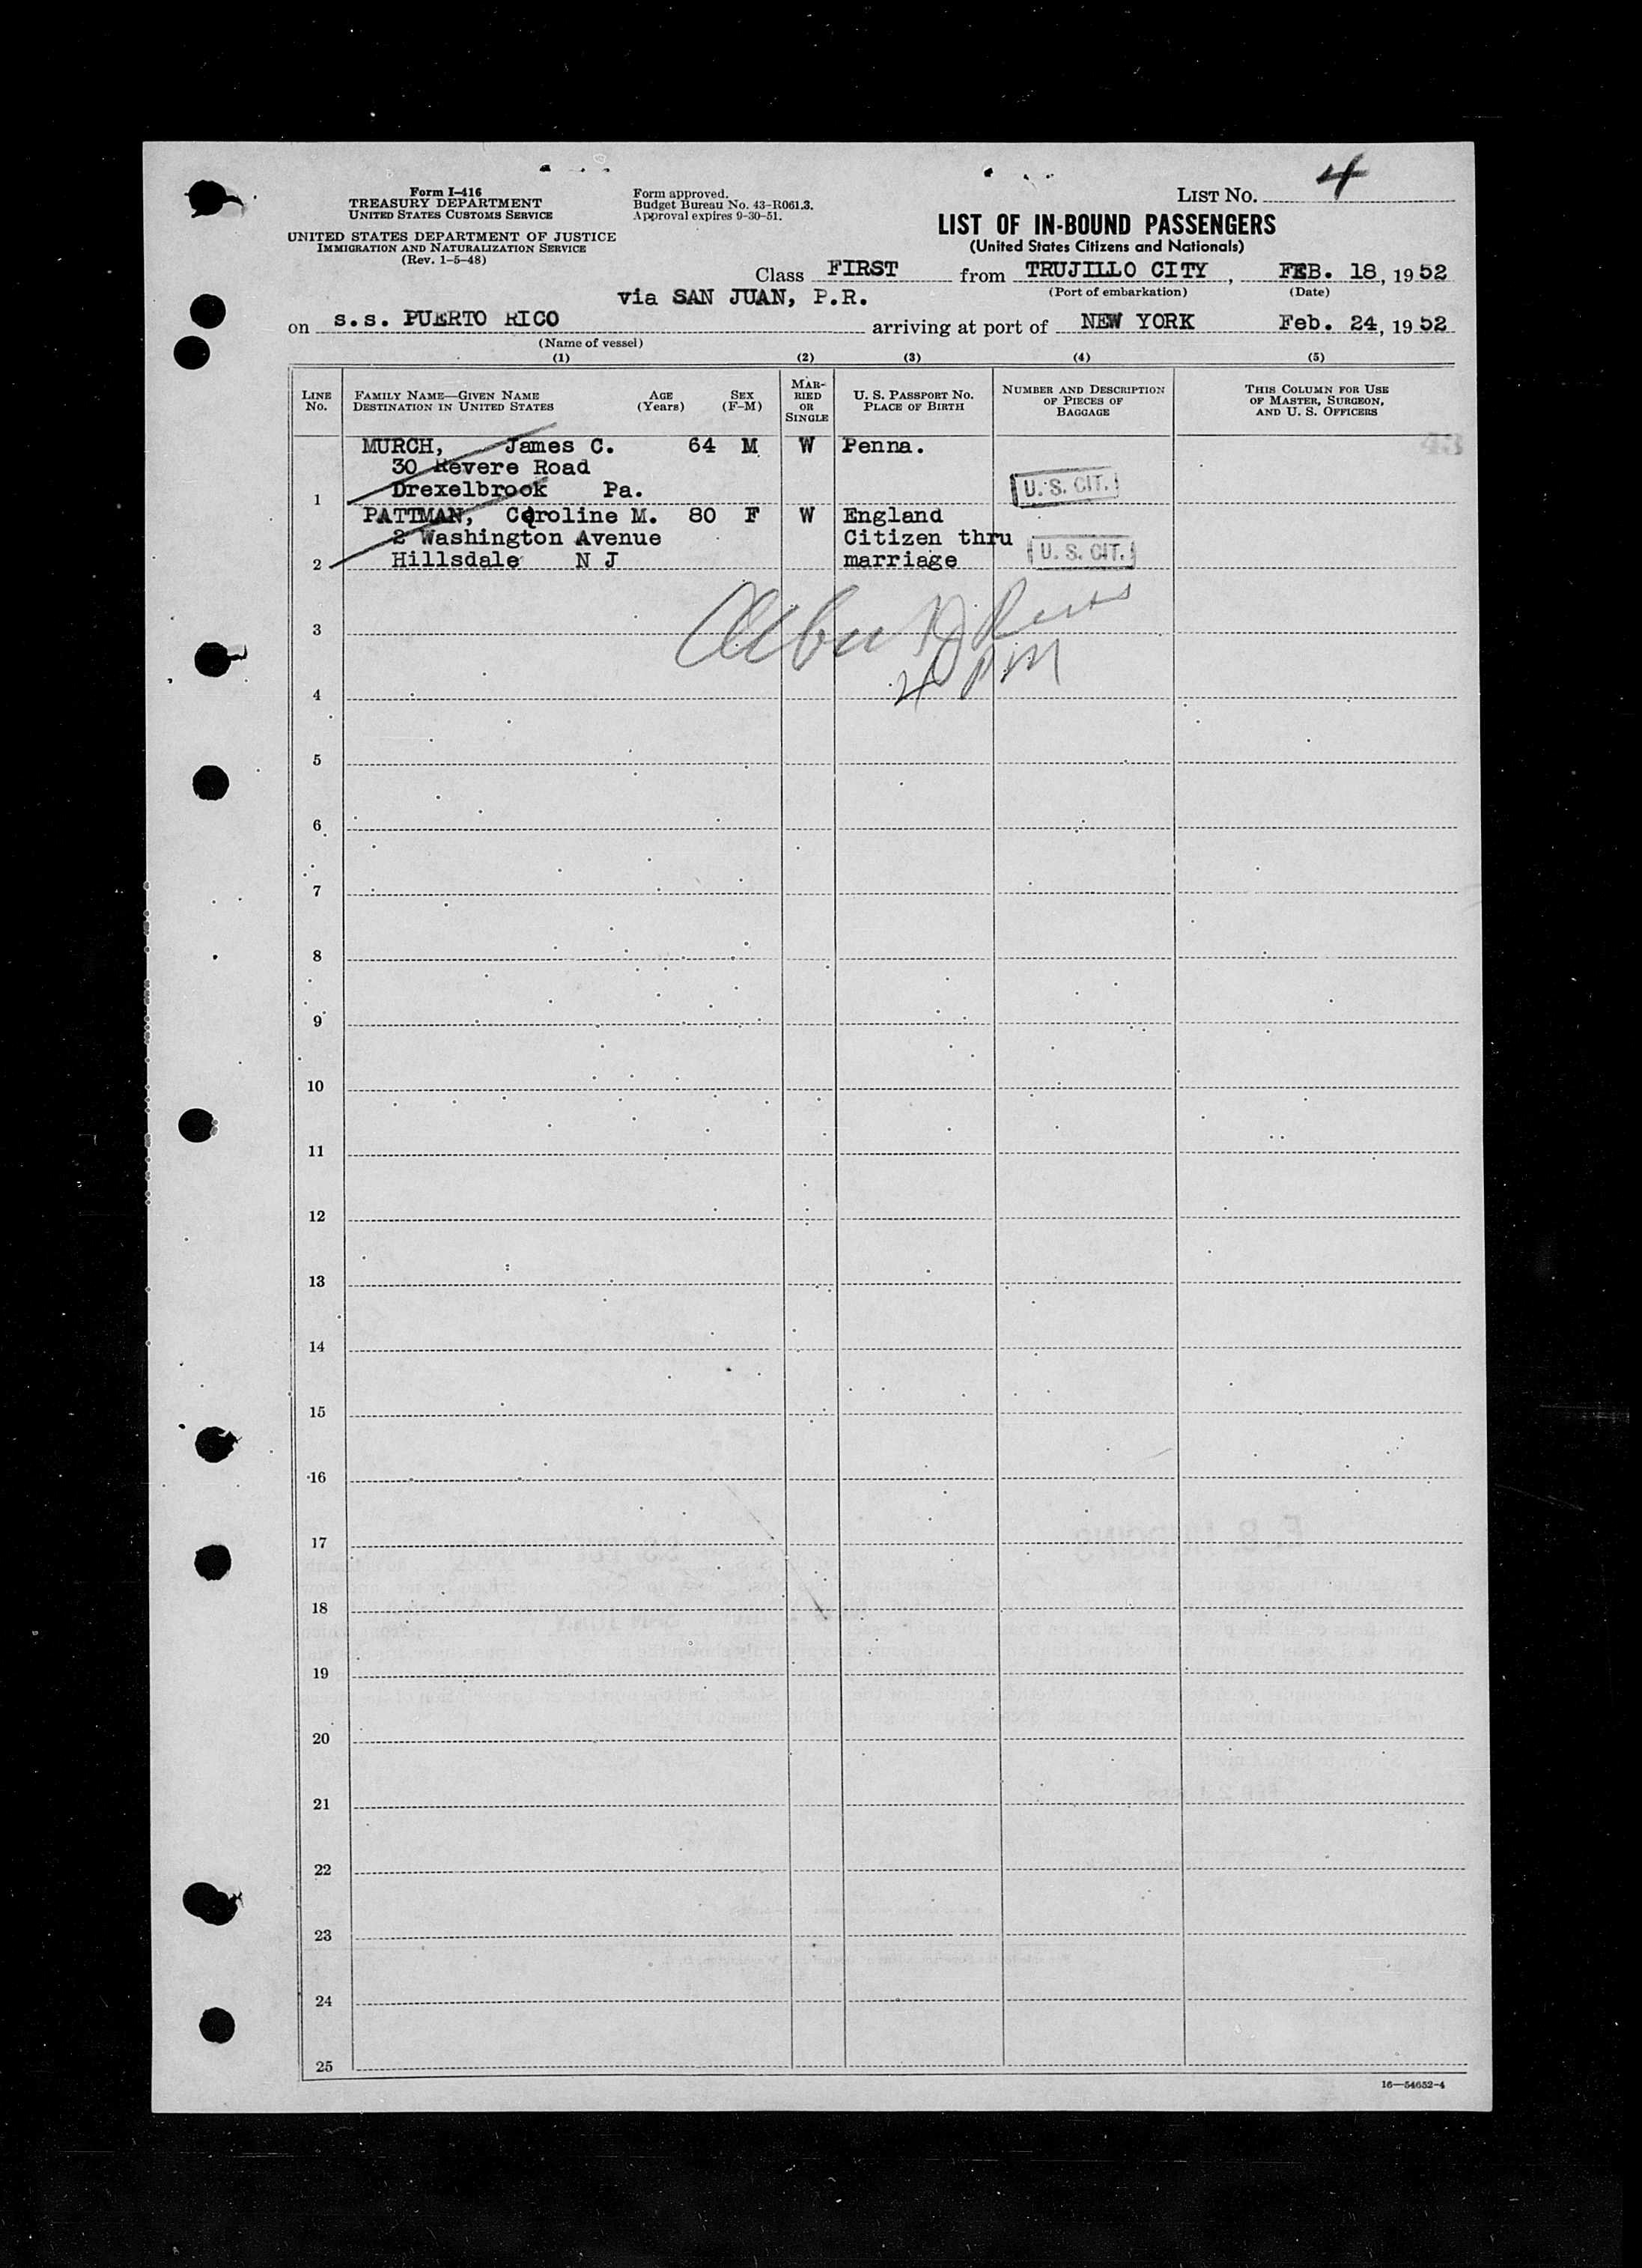 LIST NO. 4
Form I-416
TREASURY DEPARTMENT
UNITED STATES CUSTOMS SERVICE
UNITED STATES DEPARTMENT OF JUSTICE
IMMIGRATION AND NATURALIZATION SERVICE
(Rev. 1-5-48)
Form approved.
Budget Bureau No. 43-R061.3.
Approval expires 9-30-51.
LIST OF IN-BOUND PASSENGERS
(United States Citizens and Nationals)
Class FIRST from TRUJILLO CITY, FEB. 18, 1952
(Port of embarkation) (Date)
via SAN JUAN, P.R.
on s.s. PUERTO RICO arriving at port of NEW YORK Feb. 24, 1952
(Name of vessel)
(1) (2) (3) (4) (5)
LINE No.
FAMILY NAME—GIVEN NAME
DESTINATION IN UNITED STATES
AGE
(Years)
SEX
(F-M)
MAR-
RIED
OR
SINGLE
U. S. PASSPORT NO.
PLACE OF BIRTH
NUMBER AND DESCRIPTION
OF PIECES OF
BAGGAGE
THIS COLUMN FOR USE
OF MASTER, SURGEON,
AND U. S. OFFICERS
MURCH, James C. 64 M W Penna.
30 Revere Road
1 Drexelbrook Pa. U. S. CIT.
PATTMAN, Caroline M. 80 F W England
2 Washington Avenue Citizen thru
2 Hillsdale N J marriage U. S. CIT.
3
4
5
6
7
8
9
10
11
12
13
14
15
16
17
18
19
20
21
22
23
24
25
16—54652-4